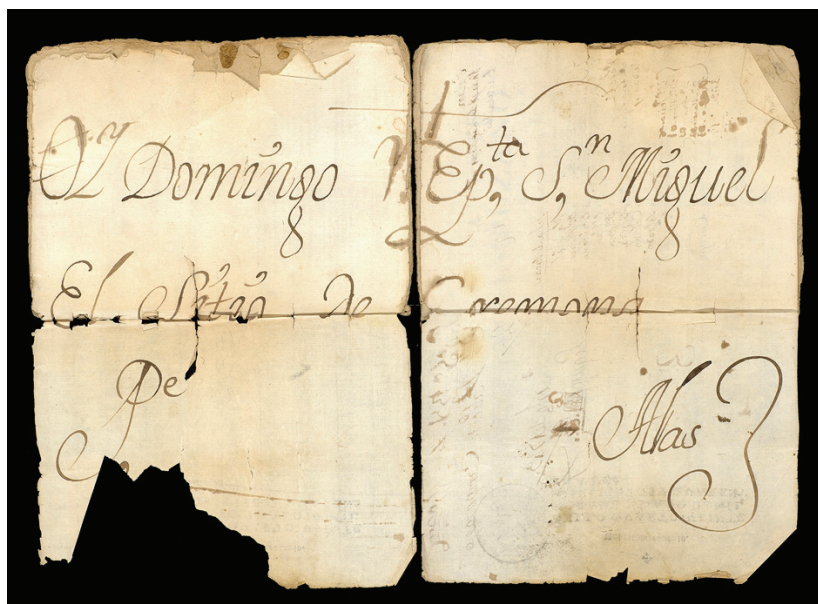 Oy Domingo Rep,ta S,n Miguel
El Sitio De Cremona
De Alas 3